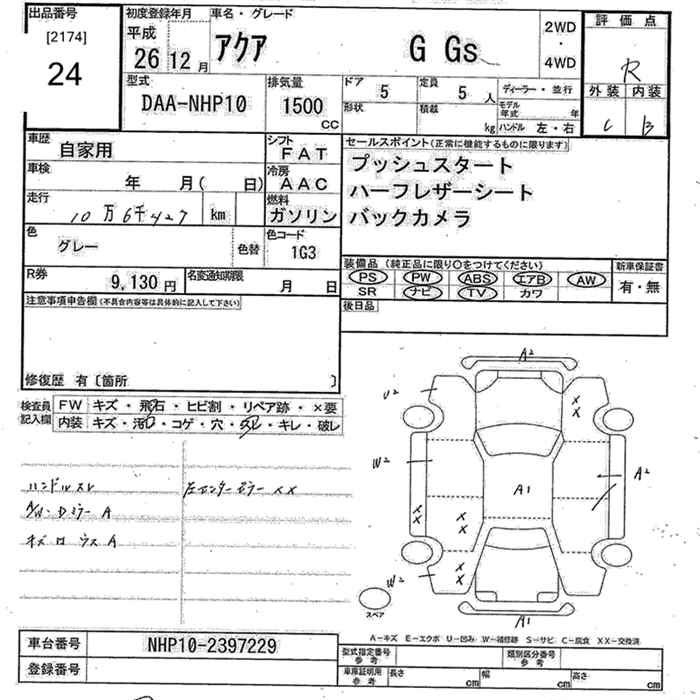 出品番号
[2174]
24
初度登録年月
平成
26 12月
車名・グレード
アクア G Gs
2WD
・
4WD
評価点
R
外装 内装
C B
型式
DAA-NHP10
排気量
1500
CC
ドア 5
定員 5 人
形状
積載 kg
ディーラー・並行
モデル年式 年
ハンドル 左・右
車歴
自家用
シフト
FAT
車検
年 月( 日)
冷房
AAC
走行
10万6千427 km
燃料
ガソリン
色
グレー
色替
色コード
1G3
R券
9,130円
名変通知期限
月 日
セールスポイント(正常に機能するものに限ります)
プッシュスタート
ハーフレザーシート
バックカメラ
装備品(純正品に限り○をつけてください)
PS PW ABS エアB AW
SR ナビ TV カワ
新車保証書
有・無
後日品
注意事項申告欄(不具合内容等は具体的に記入して下さい)
修復歴 有〔箇所 〕
検査員記入欄
FW キズ・飛石・ヒビ割・リペア跡・×要
内装 キズ・汚れ・コゲ・穴・スレ・キレ・破レ
ハンドルスレ
A/W・Dミラー A
左センターピラー XX
A2
U2
XX
W2
A2
XX
XX
A1
W2
XX
A1
スペア
A－キズ E－エクボ U－凹み W－補修跡 S－サビ C－腐食 XX－交換済
車台番号
NHP10-2397229
登録番号
型式指定番号
参考
類別区分番号
参考
車庫証明用
参考
長さ cm
幅 cm
高さ cm